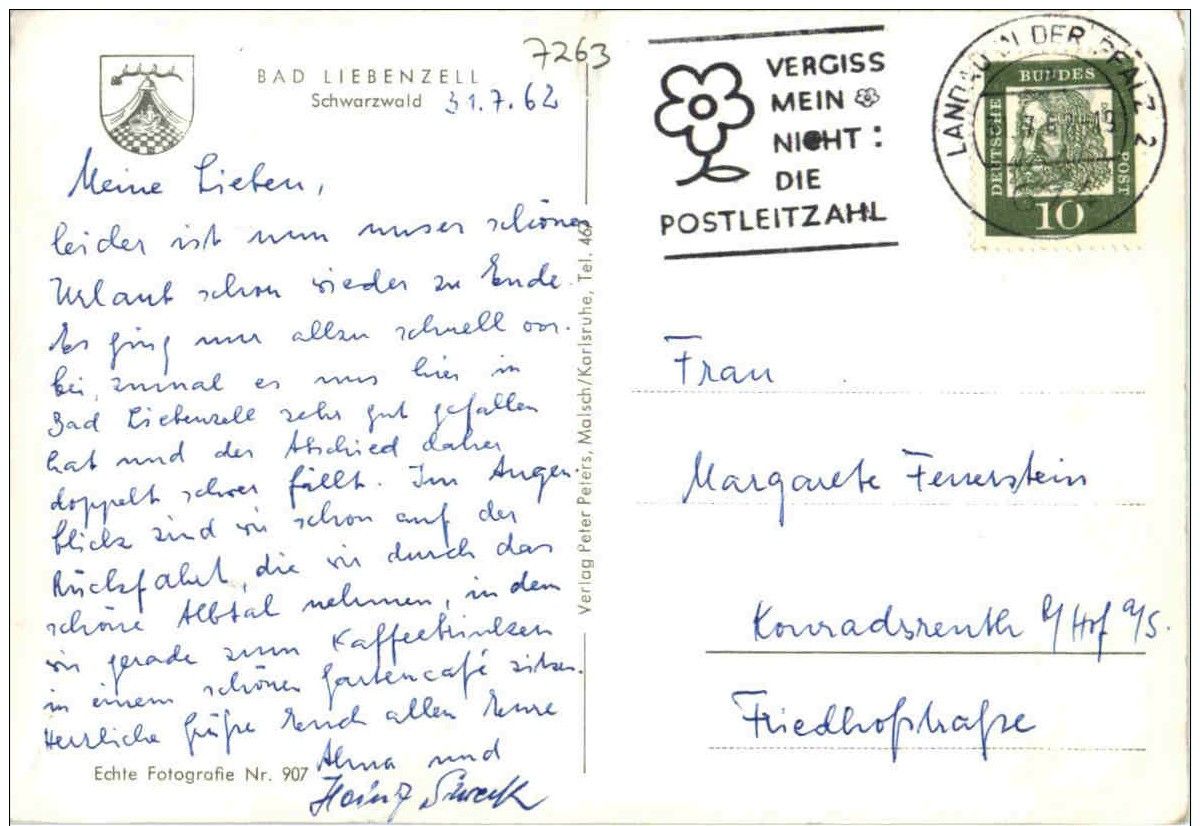 BAD LIEBENZELL
Schwarzwald
31.7.62
7263
Meine Lieben,
leider ist nun unser schöner
Urlaub schon wieder zu Ende.
Es ging nur allzu schnell vor-
bei, zumal es uns hier in
Bad Liebenzell sehr gut gefallen
hat und der Abschied daher
doppelt schwer fällt. Im Augen-
blick sind wir schon auf der
Rückfahrt, die wir durch das
schöne Albtal nehmen, in dem
wir gerade zum Kaffeetrinken
in einem schönen Gartencafé sitzen.
Herzliche Grüße Euch allen Eure
Alma und
Heinz
Echte Fotografie Nr. 907
Verlag Peter Peters, Malsch/Karlsruhe, Tel. 467
VERGISS
MEIN
NICHT:
DIE
POSTLEITZAHL
LANDAU IN DER PFALZ 2
DEUTSCHE BUNDESPOST
10
Frau
Margarete Feuerstein
Konradsreuth b/Hof a/S.
Friedhofstraße